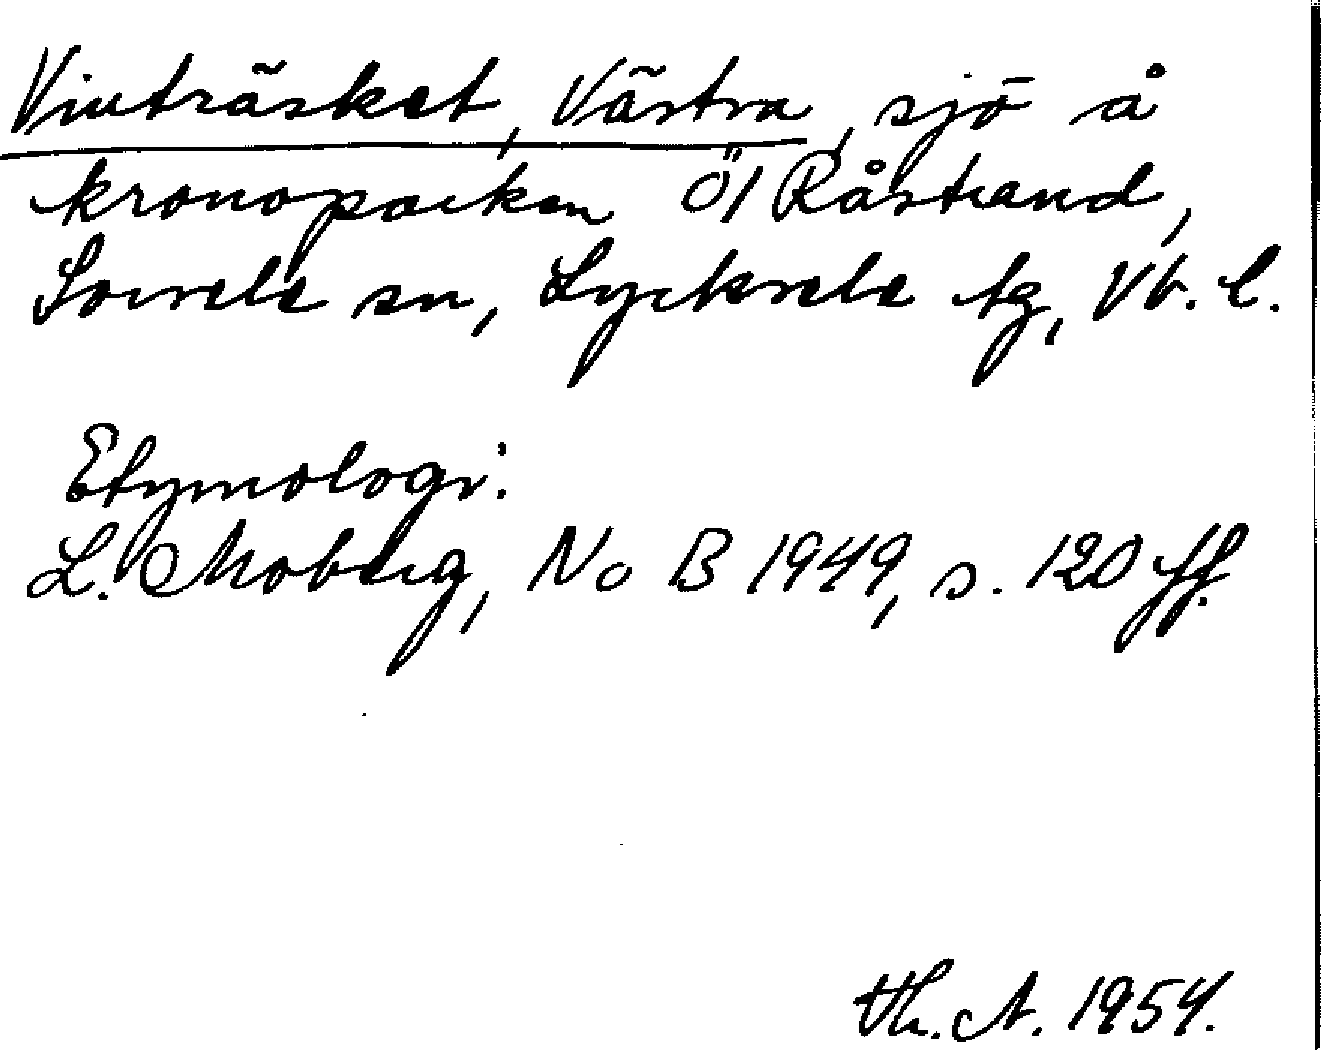 Vinträsket, Västra, sjö å
kronoparken Ö/ Råstrand,
Sorsele sn, Lycksele tg, Vb. l.
Etymologi:
L. Moberg, No B 1949, s. 120 ff.
Th. A. 1954.